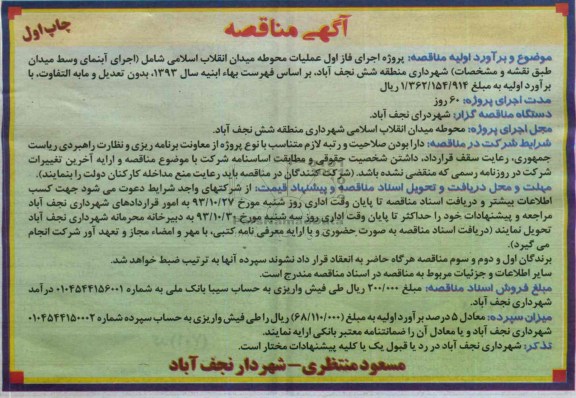 آگهی مناقصه
چاپ اول
موضوع و برآورد اولیه مناقصه: پروژه اجرای فاز اول عملیات محوطه میدان انقلاب اسلامی شامل (اجرای آبنمای وسط میدان
طبق نقشه و مشخصات) شهرداری منطقه شش نجف آباد، بر اساس فهرست بهاء ابنیه سال ۱۳۹۳، بدون تعدیل و مابه التفاوت، با
برآورد اولیه به مبلغ ۱/۳۶۲/۱۵۴/۹۱۴ ریال
مدت اجرای پروژه: ۶۰ روز
دستگاه مناقصه گزار: شهرداری نجف آباد.
محل اجرای پروژه: محوطه میدان انقلاب اسلامی شهرداری منطقه شش نجف آباد.
شرایط شرکت در مناقصه: دارا بودن صلاحیت و رتبه لازم متناسب با نوع پروژه از معاونت برنامه ریزی و نظارت راهبردی ریاست
جمهوری، رعایت سقف قرارداد، داشتن شخصیت حقوقی و مطابقت اساسنامه شرکت با موضوع مناقصه و ارایه آخرین تغییرات
شرکت در روزنامه رسمی که منقضی نشده باشد. (شرکت کنندگان در مناقصه باید رعایت منع مداخله کارکنان دولت را بنمایند).
مهلت و محل دریافت و تحویل اسناد مناقصه و پیشنهاد قیمت: از شرکتهای واجد شرایط دعوت می شود جهت کسب
اطلاعات بیشتر و دریافت اسناد مناقصه تا پایان وقت اداری روز شنبه مورخ ۹۳/۱۰/۲۷ به امور قراردادهای شهرداری نجف آباد
مراجعه و پیشنهادات خود را حداکثر تا پایان وقت اداری روز سه شنبه مورخ ۹۳/۱۰/۳۰ به دبیرخانه محرمانه شهرداری نجف آباد
تحویل نمایند (دریافت اسناد مناقصه به صورت حضوری و با ارایه معرفی نامه کتبی، با مهر و امضاء مجاز و تعهد آور شرکت انجام
می گیرد).
برندگان اول و دوم و سوم مناقصه هرگاه حاضر به انعقاد قرار داد نشوند سپرده آنها به ترتیب ضبط خواهد شد.
سایر اطلاعات و جزئیات مربوط به مناقصه در اسناد مناقصه مندرج است.
مبلغ فروش اسناد مناقصه: مبلغی ۲۰۰/۰۰۰ ریال طی فیش واریزی به حساب سیبا بانک ملی به شماره ۰۱۰۴۵۴۴۱۵۶۰۰۱ درآمد
شهرداری نجف آباد.
میزان سپرده: معادل ۵ درصد برآورد اولیه به مبلغ (۶۸/۱۱۰/۰۰۰) ریال را طی فیش واریزی به حساب سپرده شماره ۰۱۰۴۵۴۴۱۵۰۰۰۲
شهرداری نجف آباد و یا معادل آن را ضمانتنامه معتبر بانکی ارایه نمایند.
تذکر: شهرداری نجف آباد در رد یا قبول یک یا کلیه پیشنهادات مختار است.
مسعود منتظری – شهردار نجف آباد